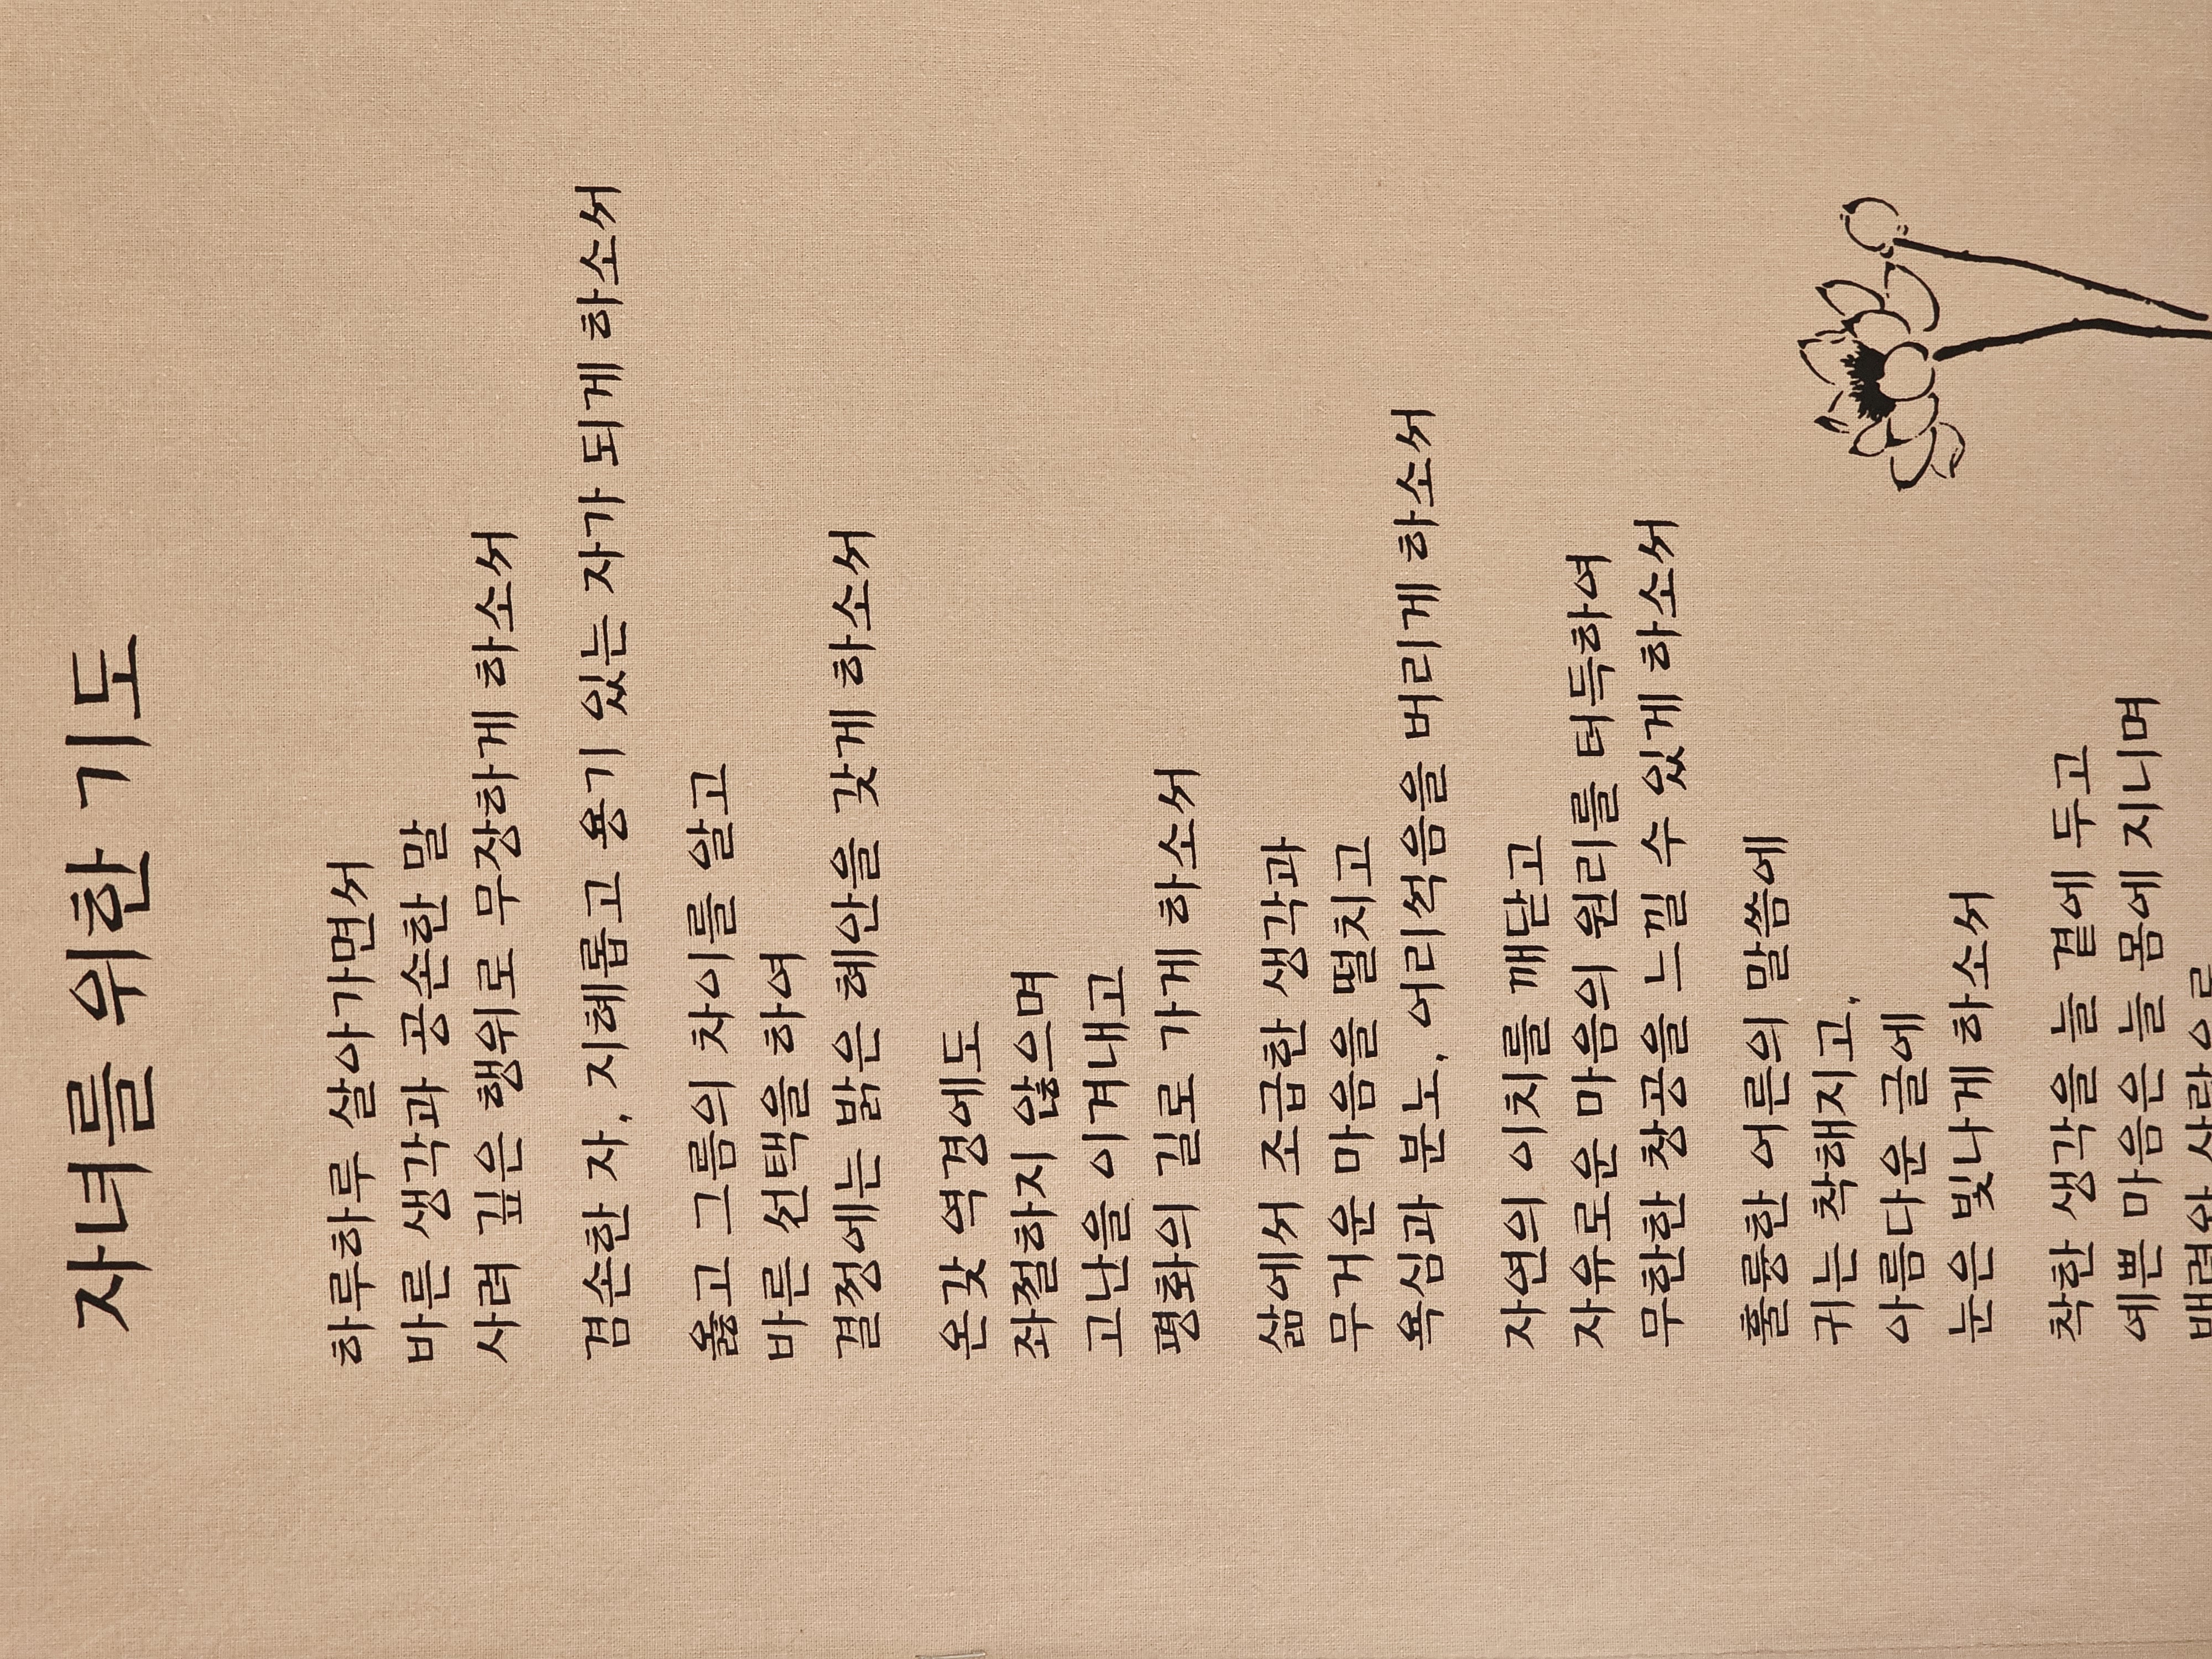 자녀를 위한 기도
하루하루 살아가면서
바른 생각과 공손한 말
사려 깊은 행위로 무장하게 하소서
겸손한 자, 지혜롭고 용기 있는 자가 되게 하소서
옳고 그름의 차이를 알고
바른 선택을 하여
결정에는 밝은 혜안을 갖게 하소서
온갖 역경에도
좌절하지 않으며
고난을 이겨내고
평화의 길로 가게 하소서
삶에서 조급한 생각과
무거운 마음을 떨치고
욕심과 분노, 어리석음을 버리게 하소서
자연의 이치를 깨닫고
자유로운 마음의 원리를 터득하여
무한한 창공을 느낄 수 있게 하소서
훌륭한 어른의 말씀에
귀는 착해지고,
아름다운 글에
눈은 빛나게 하소서
착한 생각을 늘 곁에 두고
예쁜 마음은 늘 몸에 지니며
배려와 사랑으로